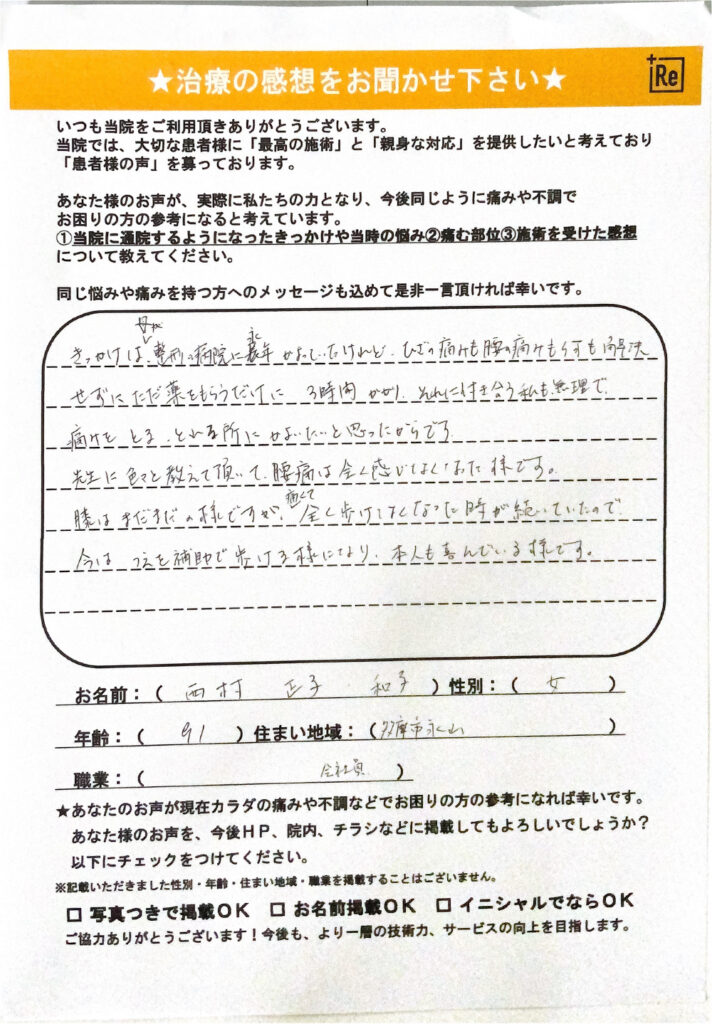 +Re
★治療の感想をお聞かせ下さい★
いつも当院をご利用頂きありがとうございます。
当院では、大切な患者様に「最高の施術」と「親身な対応」を提供したいと考えており
「患者様の声」を募っております。
あなた様のお声が、実際に私たちの力となり、今後同じように痛みや不調で
お困りの方の参考になると考えています。
①当院に通院するようになったきっかけや当時の悩み②痛む部位③施術を受けた感想
について教えてください。
同じ悩みや痛みを持つ方へのメッセージも込めて是非一言頂ければ幸いです。
母が
きっかけは、整形の病院に永年かよっていたけれど、ひざの痛みも腰の痛みも何も解決
せずにただ薬をもらうだけに 3時間かかり、それに付き合う私も無理で、
痛みをとる、とれる所にかよいたいと思ったからです
先生に色々と教えて頂いて、腰痛は全く感じなくなった様です。
痛くて
膝はまだまだの様ですが、全く歩けなくなった時が続いていたので
今は つえを補助で歩ける様になり、本人も喜んでいる様です。
お名前：（ 西村 正子・和子 ）性別：（ 女 ）
年齢：（ 91 ）住まい地域：（多摩市永山 ）
職業：（ 会社員 ）
★あなたのお声が現在カラダの痛みや不調などでお困りの方の参考になれば幸いです。
あなた様のお声を、今後ＨＰ、院内、チラシなどに掲載してもよろしいでしょうか？
以下にチェックをつけてください。
※記載いただきました性別・年齢・住まい地域・職業を掲載することはございません。
□ 写真つきで掲載ＯＫ □ お名前掲載ＯＫ □ イニシャルでならＯＫ
ご協力ありがとうございます！今後も、より一層の技術力、サービスの向上を目指します。